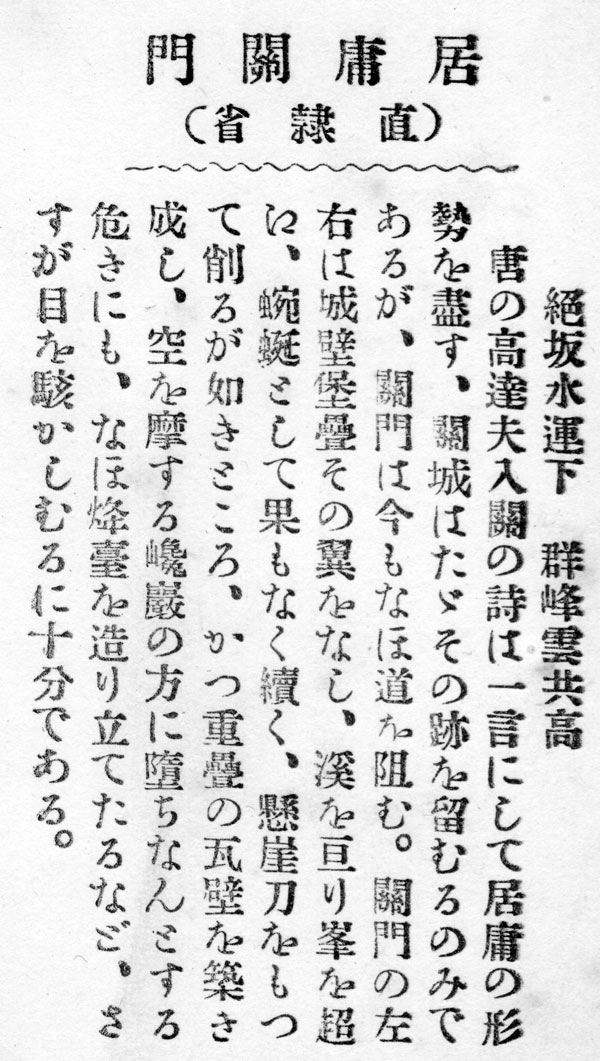 居庸關門
（直隷省）
絕坂水運下　群峰雲共高
唐の高達夫入關の詩は一言にして居庸の形
勢を盡す、關城はたゞその跡を留むるのみで
あるが、關門は今もなほ道を阻む。關門の左
右は城壁堡疊その翼をなし、溪を亘り峯を超
え、蜿蜒として果もなく續く、懸崖刀をもつ
て削るが如きところ、かつ重疊の瓦壁を築き
成し、空を摩する巉巖の方に墮ちなんとする
危きにも、なほ烽臺を造り立てたるなど、さ
すが目を駭かしむるに十分である。